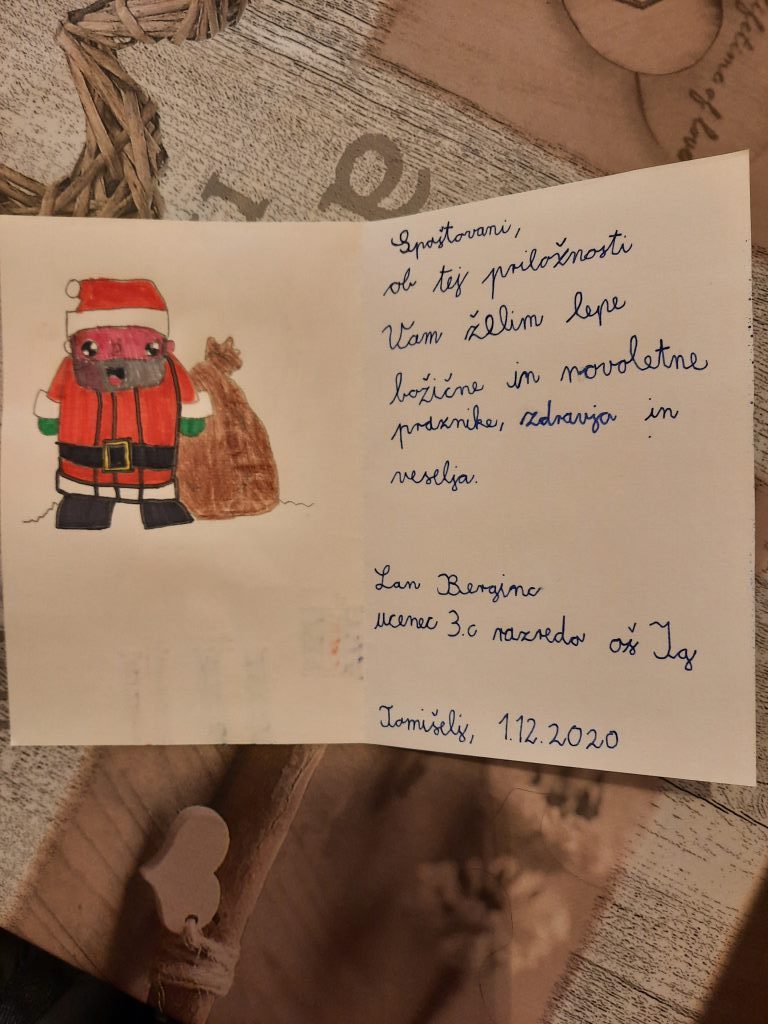 Lifetime of love
a
Spoštovani,
ob tej priložnosti
Vam želim lepe
božične in novoletne
praznike, zdravja in
veselja.
Lan Berginc
učenec 3.c razreda oš Ig
Tomišelj, 1.12.2020